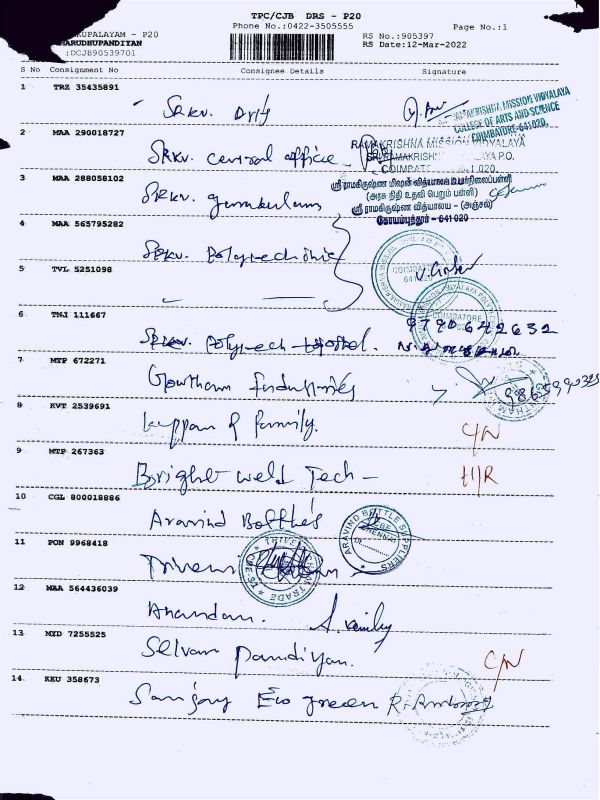 TPC/CJB DRS - P20
Phone No.:0422-3505555 Page No.:1
KUPALAYAM - P20 RS No.:905397
MARUDHUPANDIYAN RS Date:12-Mar-2022
:DCJB90539701
S No Consignment No Consignee Details Signature
1 TRZ 35435891
SRKV.
RAMAKRISHNA MISSION VIDYALAYA
COLLEGE OF ARTS AND SCIENCE
COIMBATORE-641 020.
2 MAA 290018727
SRKV. central office
RAMAKRISHNA MISSION VIDYALAYA
SRI RAMAKRISHNA VIDYALAYA P.O.
COIMBATORE-641 020
3 MAA 288058102
SRKV. gurukulam
ஸ்ரீ ராமகிருஷ்ண மிஷன் வித்யாலய உயர்நிலைப்பள்ளி
(அரசு நிதி உதவி பெறும் பள்ளி)
ஸ்ரீ ராமகிருஷ்ண வித்யாலய - (அஞ்சல்)
கோயம்புத்தூர் - 641 020
4 MAA 565795282
SRKV. Polytechnic
COIMBATORE
641 020
5 TVL 5251098
6 TNJ 111667
SRKV. Polytech
COIMBATORE
9790642632
7 MTP 672271
Gowtham Industries
8 KVT 2539691
Kuppan & family. C/N
9 MTP 267363
Bright weld Tech - H/R
10 CGL 800018886
Aravind Bottles
ARAVIND BOTTLE SUPPLIERS
11 PON 9968418
Thriveni
12 MAA 564436039
Anandan.
13 MYD 7255525
Selvam Pandiyan. C/N
14 KKU 358673
Sanjay Eco green